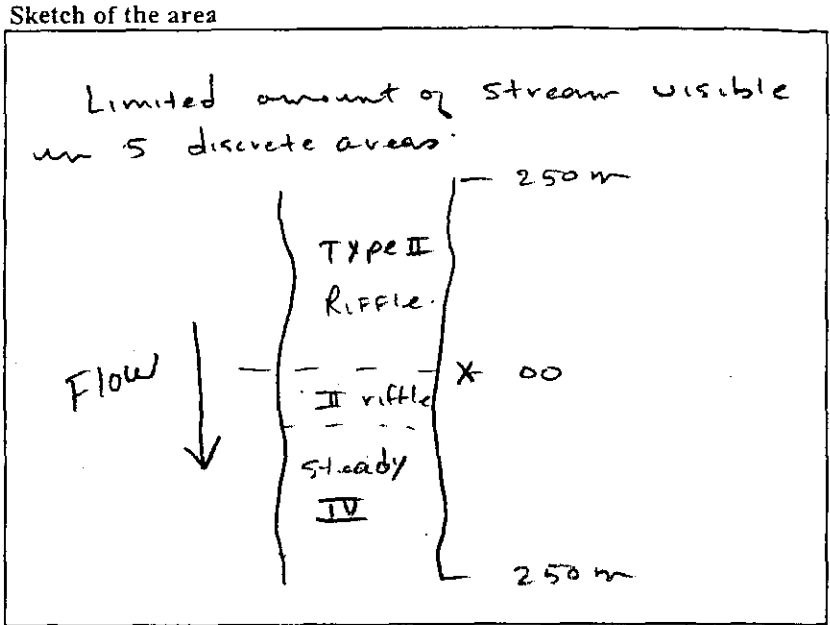 Sketch of the area
Limited amount of stream visible
in 5 discrete areas.
250 m
Type II
Riffle.
Flow
X 00
II riffle
steady
IV
250 m